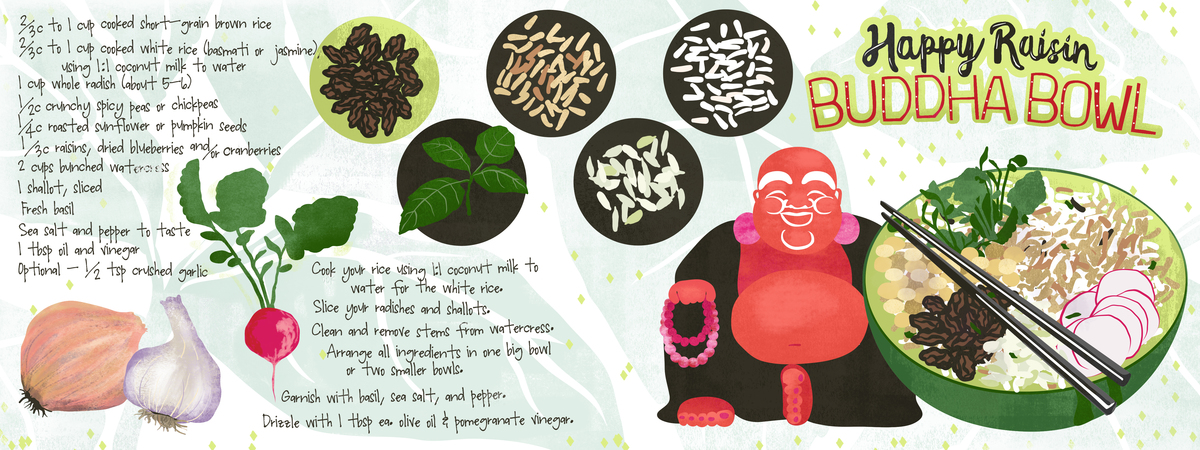 2/3c to 1 cup cooked short-grain brown rice
2/3c to 1 cup cooked white rice (basmati or jasmine),
using 1:1 coconut milk to water
1 cup whole radish (about 5-6)
1/2c crunchy spicy peas or chickpeas
1/4c roasted sunflower or pumpkin seeds
1/3c raisins, dried blueberries and/or cranberries
2 cups bunched watercress
1 shallot, sliced
Fresh basil
Sea salt and pepper to taste
1 tbsp oil and vinegar
Optional - 1/2 tsp crushed garlic
Cook your rice using 1:1 coconut milk to
water for the white rice.
Slice your radishes and shallots.
Clean and remove stems from watercress.
Arrange all ingredients in one big bowl
or two smaller bowls.
Garnish with basil, sea salt, and pepper.
Drizzle with 1 tbsp ea. olive oil & pomegranate vinegar.
Happy Raisin
BUDDHA BOWL